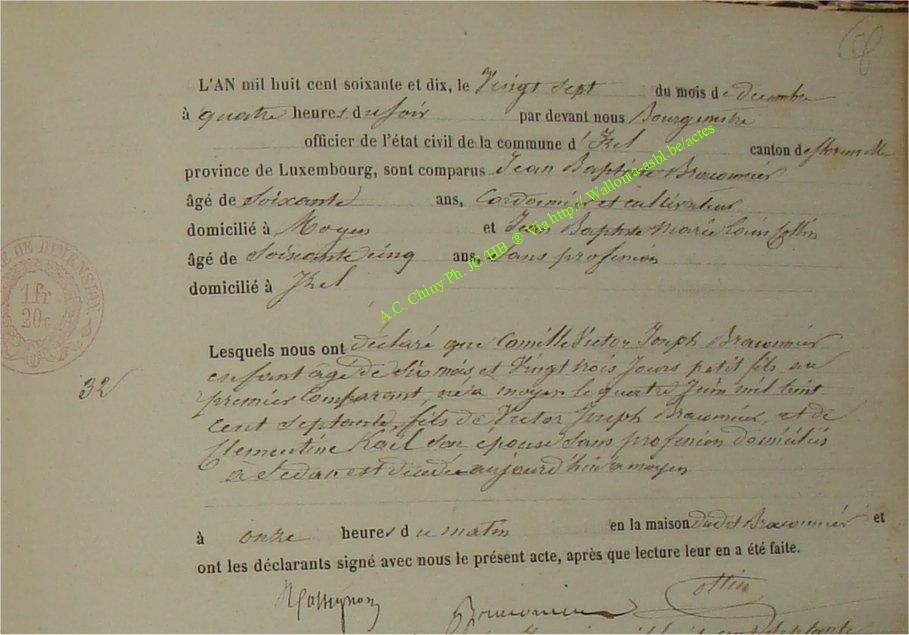 L'AN mil huit cent soixante et dix, le Vingt sept du mois de decembre
à quatre heures du soir par devant nous Bourgmestre
officier de l'état civil de la commune d'Izel canton de florenville
province de Luxembourg, sont comparus Jean Baptiste Braconnier
âgé de Soixante ans, Cordonnier et cultivateur
domicilié à Moyen et Jean Baptiste Marie Louis Collin
âgé de Soixante cinq ans, Sans profession
domicilié à Izel
1 fr
20c
DE DIMENSION
Lesquels nous ont déclaré que Camille Victor Joseph Braconnier
32
enfant agé de Six mois et Vingt trois Jours petit fils au
premier Comparant, né a moyen le quatre Juin mil huit
cent septante, fils de Victor Joseph Braconnier, et de
Clementine Kaël son epouse Sans profession domiciliés
a Sedan est décédé aujourd'hui a moyen
à onze heures du matin en la maison dudit Braconnier et
ont les déclarants signé avec nous le présent acte, après que lecture leur en a été faite.
Braconnier Collin
A.C. Chiny Ph. JC/HB ® Via http://Wallonia-asbl.be/actes